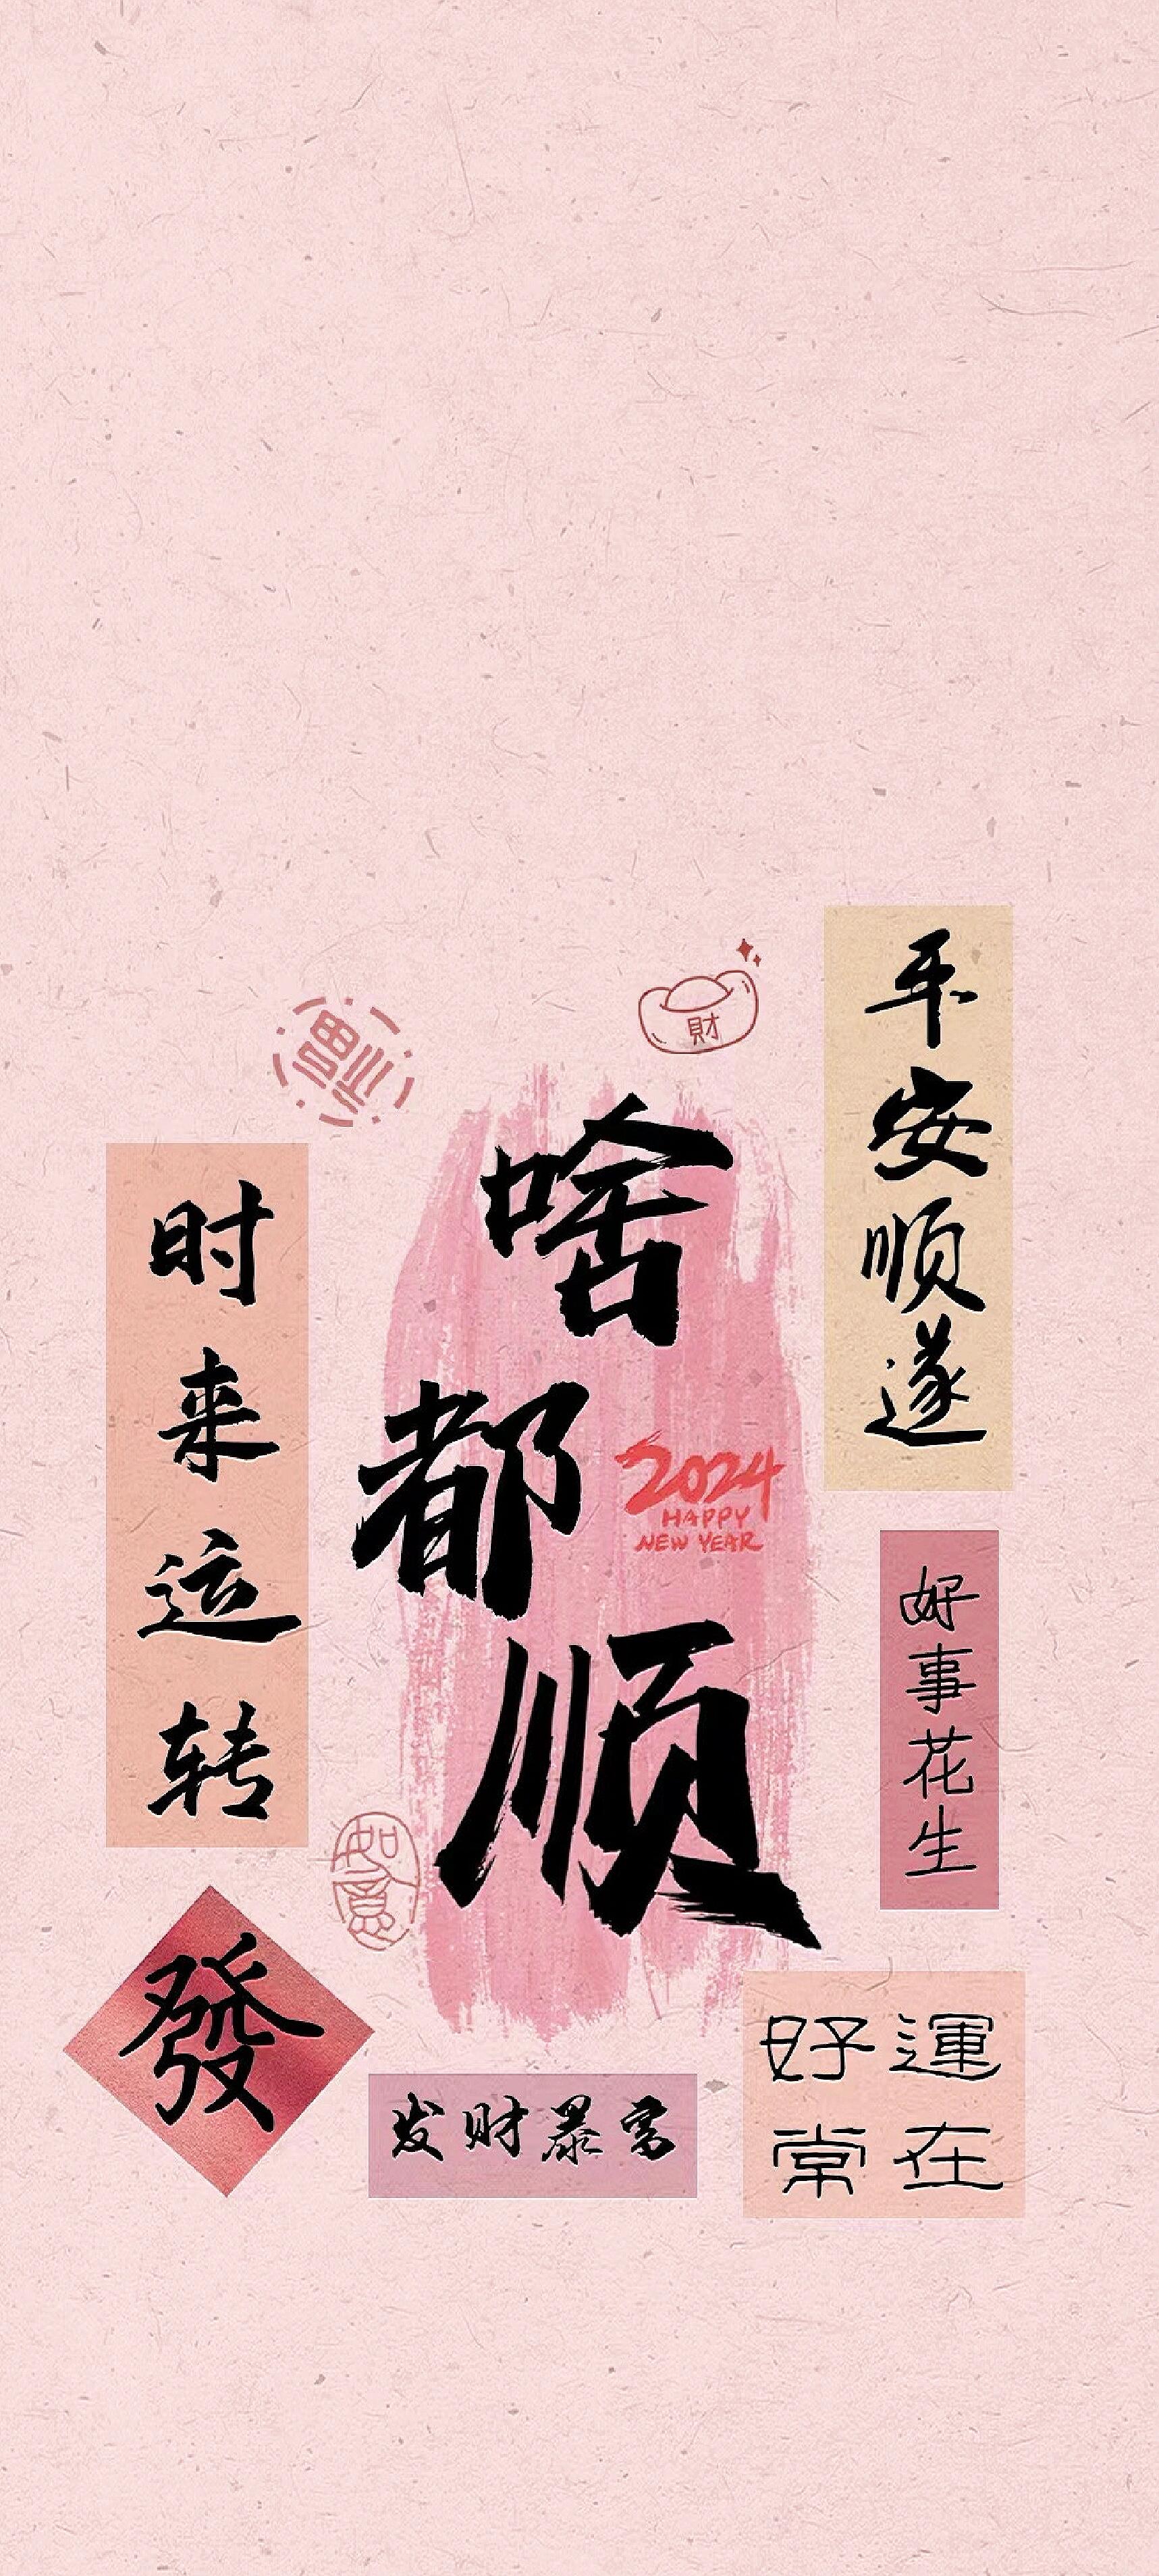 财
福
平安顺遂
啥都顺
时来运转
2024
HAPPY
NEW YEAR
好事花生
如意
發
好運
常在
发财暴富